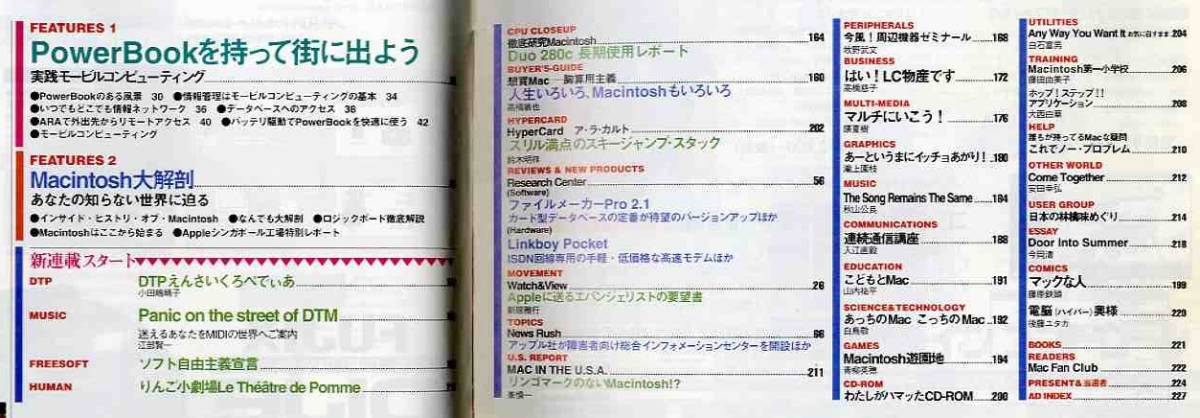 FEATURES 1
PowerBookを持って街に出よう
実践モービルコンピューティング
●PowerBookのある風景 30 ●情報管理はモービルコンピューティングの基本 34
●いつでもどこでも情報ネットワーク 36 ●データベースへのアクセス 38
●ARAで外出先からリモートアクセス 40 ●バッテリ駆動でPowerBookを快適に使う 42
●モービルコンピューティング
FEATURES 2
Macintosh大解剖
あなたの知らない世界に迫る
●インサイド・ヒストリ・オブ・Macintosh ●なんでも大解剖 ●ロジックボード徹底解説
●Macintoshはここから始まる ●Appleシンガポール工場特別レポート
新連載スタート
DTP DTPえんさいくろぺでぃあ
MUSIC Panic on the street of DTM
迷えるあなたをMIDIの世界へご案内
江部賢一
FREESOFT ソフト自由主義宣言
HUMAN りんご小劇場Le Théâtre de Pomme
CPU CLOSEUP
徹底研究Macintosh 164
Duo 280c 長期使用レポート
BUYER'S-GUIDE
懸賞Mac 胸算用主義 160
人生いろいろ、Macintoshもいろいろ
HYPERCARD
HyperCard ア・ラ・カルト 202
スリル満点のスキージャンプ・スタック
鈴木明祥
REVIEWS & NEW PRODUCTS
Research Center 56
(Software)
ファイルメーカーPro 2.1
カード型データベースの定番が待望のバージョンアップほか
(Hardware)
Linkboy Pocket
ISDN回線専用の手軽・低価格な高速モデムほか
MOVEMENT
Watch&View 26
Appleに送るエバンジェリストの要望書
TOPICS
News Rush 66
アップル社が障害者向け総合インフォメーションセンターを開設ほか
U.S. REPORT
MAC IN THE U.S.A. 211
リンゴマークのないMacintosh!?
PERIPHERALS
今風！周辺機器ゼミナール 168
牧野武文
BUSINESS
はい！LC物産です 172
高橋慈子
MULTI-MEDIA
マルチにいこう！ 176
GRAPHICS
あーというまにイッチョあがり！ 180
滝上園枝
MUSIC
The Song Remains The Same 184
秋山公良
COMMUNICATIONS
連続通信講座 188
EDUCATION
こどもとMac 191
山内祐平
SCIENCE&TECHNOLOGY
あっちのMac こっちのMac 192
白鳥敬
GAMES
Macintosh遊園地 194
青柳英穂
CD-ROM
わたしがハマッたCD-ROM 200
UTILITIES
Any Way You Want It お気に召すまま 204
白石富男
TRAINING
Macintosh第一小学校 206
藤田由美子
ホップ！ステップ！！
アプリケーション 208
HELP
誰もが持ってるMacな疑問
これでノー・プロブレム 210
OTHER WORLD
Come Together 212
安田幸弘
USER GROUP
日本の林檎味めぐり 214
ESSAY
Door Into Summer 218
COMICS
マックな人 199
藤原鉄頭
電脳（ハイパー）奥様 220
後藤ユタカ
BOOKS 221
READERS
Mac Fan Club 222
PRESENT&当選者 224
AD INDEX 227